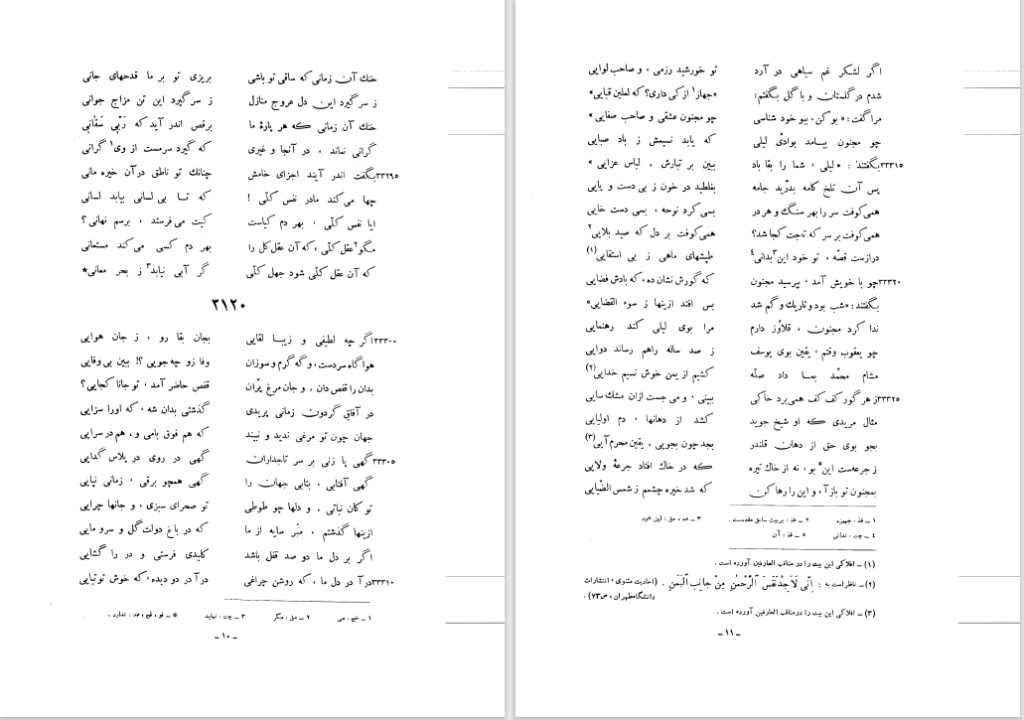 خنك آن زمانی که ساقی تو باشی بریزی تو بر ما قدحهای جانی
ز سر گیرد این دل عروج منازل ز سر گیرد این تن مزاج جوانی
خنك آن زمانی که هر پارهٔ ما برقص اندر آید که رَبّی سَقانی
گرانی نماند ، در آنجا و غیری که گیرد سرمست از وی۱ گرانی
۳۳۲۹۵ بگفت اندر آیند اجزای خامش چنانك تو ناطق در آن خیره مانی
چها می‌کند مادر نفس کلّی ! که تا بی لسانی بیابد لسانی
ایا نفس کلّی ، بهر دم کیاست کیت می‌فرستد ، برسم نهانی؟
مگو۲ عقل کلّی ، که آن عقل کل را بهر دم کسی می‌کند مستعانی
که آن عقل کلّی شود جهل کلّی گر آبی نیابد۳ ز بحر معانی*
۳۱۲۰
۳۳۳۰۰ اگر چه لطیفی و زیبا لقایی بجان بقا رو ، ز جان هوایی
هوا گاه سردست، و گه گرم و سوزان وفا زو چه جویی ؟! ببین بی وفایی
بدان را قفص دان ، و جان مرغ پرّان قفص حاضر آمد ، تو جانا کجایی؟
در آفاق گردون زمانی پریدی گذشتی بدان شه ، که اورا سزایی
جهان چون تو مرغی ندید و نبیند که هم فوق بامی و ، هم در سرایی
۳۳۳۰۵ گهی پا زنی بر سر تاجداران گهی در روی در پلاس گدایی
گهی آفتابی ، بتابی جهان را گهی همچو برقی ، زمانی نپایی
تو کان نباتی ، و دلها چو طوطی تو صحرای سبزی ، و جانها چرایی
ازینها گذشتم ، مبر سایه از ما که در باغ دولت گل و سرو مایی
اگر بر دل ما دو صد قفل باشد کلیدی فرستی و در را گشایی
۳۳۳۱۰ درآ در دل ما ، که روشن چراغی درآ در دو دیده، که خوش توتیایی
۱ ـ خب ، می ۲ ـ مق ، مگر ۳ ـ چت : نیاید * ـ فو ، قح ، عد : ندارد .
ـ ۱۰ ـ
اگر لشکر غم سیاهی در آرد تو خورشید رزمی ، و صاحب لوایی
شدم در گلستان و با گل بگفتم: «جهاز۱ از کی داری؟ که لعلین قبایی»
مرا گفت: « بو کن ، ببو خود شناسی چو مجنون عشقی و صاحب صفایی »
چو مجنون بیامد بوادیّ لیلی که یابد نسیمش ز باد صبایی
۳۳۳۱۵ بگفتند : « لیلی ، شما را بقا باد ببین بر تبارش ، لباس عزایی »
پس آن تلخ کامه بدرّید جامه بغلطید در خون ز بی دست و پایی
همی‌کوفت سر را بهر سنگ و هر در بسی کرد نوحه ، بسی دست خایی
همی‌کوفت بر سر که تاجت کجا شد؟ همی‌کوفت بر دل که صید بلایی۲
درازست قصّه ، تو خود این۳ بدانی۴ طپشهای ماهی ز بی استقایی (۱)
۳۳۳۲۰ چو با خویش آمد ، بپرسید مجنون که گورش نشان ده، که بادش فضایی
بگفتند: «شب بود و تاریك و گم شد بس افتد ازینها ز سوء القضایی»
ندا کرد مجنون ، قلاوز دارم مرا بوی لیلی کند رهنمایی
چو یعقوب وقتم ، یقین بوی یوسف ز صد ساله راهم رساند دوایی
مشام محمّد بما داد صلّه کشیم از یمن خوش نسیم خدایی (۲)
۳۳۳۲۵ ز هر گور کف کف همی‌برد خاکی ببینی ، و می جست ازان مشك سایی
مثال مریدی که او شیخ جوید کشد از دهانها ، دم اولیایی
بجو بوی حق از دهان قلندر بجد چون بجویی ، یقین محرم آیی (۳)
ز جرعه‌ست این۵ بو، نه از خاك تیره که در خاك افتاد جرعهٔ ولایی
بمجنون تو باز آ، و این را رها کن که شد خیره چشمم ز شمس الضّیایی
۱ ـ فذ ، جهیزه ۲ ـ فذ : بر بیت سابق مقدمست . ۳ ـ عد ، مق : این خود
٤ ـ چت : ندانی ۵ ـ فذ : آن
(۱) ـ افلاکی این بیت را در مناقب العارفین آورده است .
(۲) ـ ناظر است به : اِنّی لَاَجِدُ نَفَسَ الرَّحْمٰنِ مِنْ جانِبِ الیَمَنِ . (احادیث مثنوی ، انتشارات
دانشگاه طهران ، ص ۷۳) .
(۳) ـ افلاکی این بیت را در مناقب العارفین آورده است .
ـ ۱۱ ـ